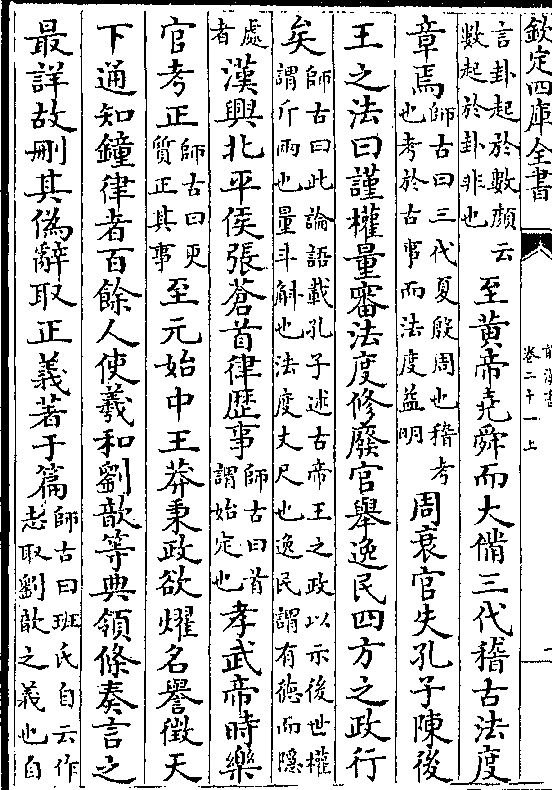 欽定四庫全書
前漢書
卷二十一上
言卦起於數顔云
數起於卦非也
至黃帝堯舜而大備三代稽古法度
章焉
師古曰三代夏殷周也稽考
也考於古事而法度益明
周衰官失孔子陳後
王之法曰謹權量審法度修廢官舉逸民四方之政行
矣
師古曰此論語載孔子述古帝王之政以示後世權
謂斤兩也量斗斛也法度丈尺也逸民謂有德而隱
處
者
漢興北平侯張蒼首律歴事
師古曰首
謂始定也
孝武帝時樂
官考正
師古曰更
質正其事
至元始中王莽秉政欲燿名譽徵天
下通知鐘律者百餘人使羲和劉歆等典領條奏言之
最詳故刪其偽辭取正義著于篇
師古曰班氏自云作
志取劉歆之義也自